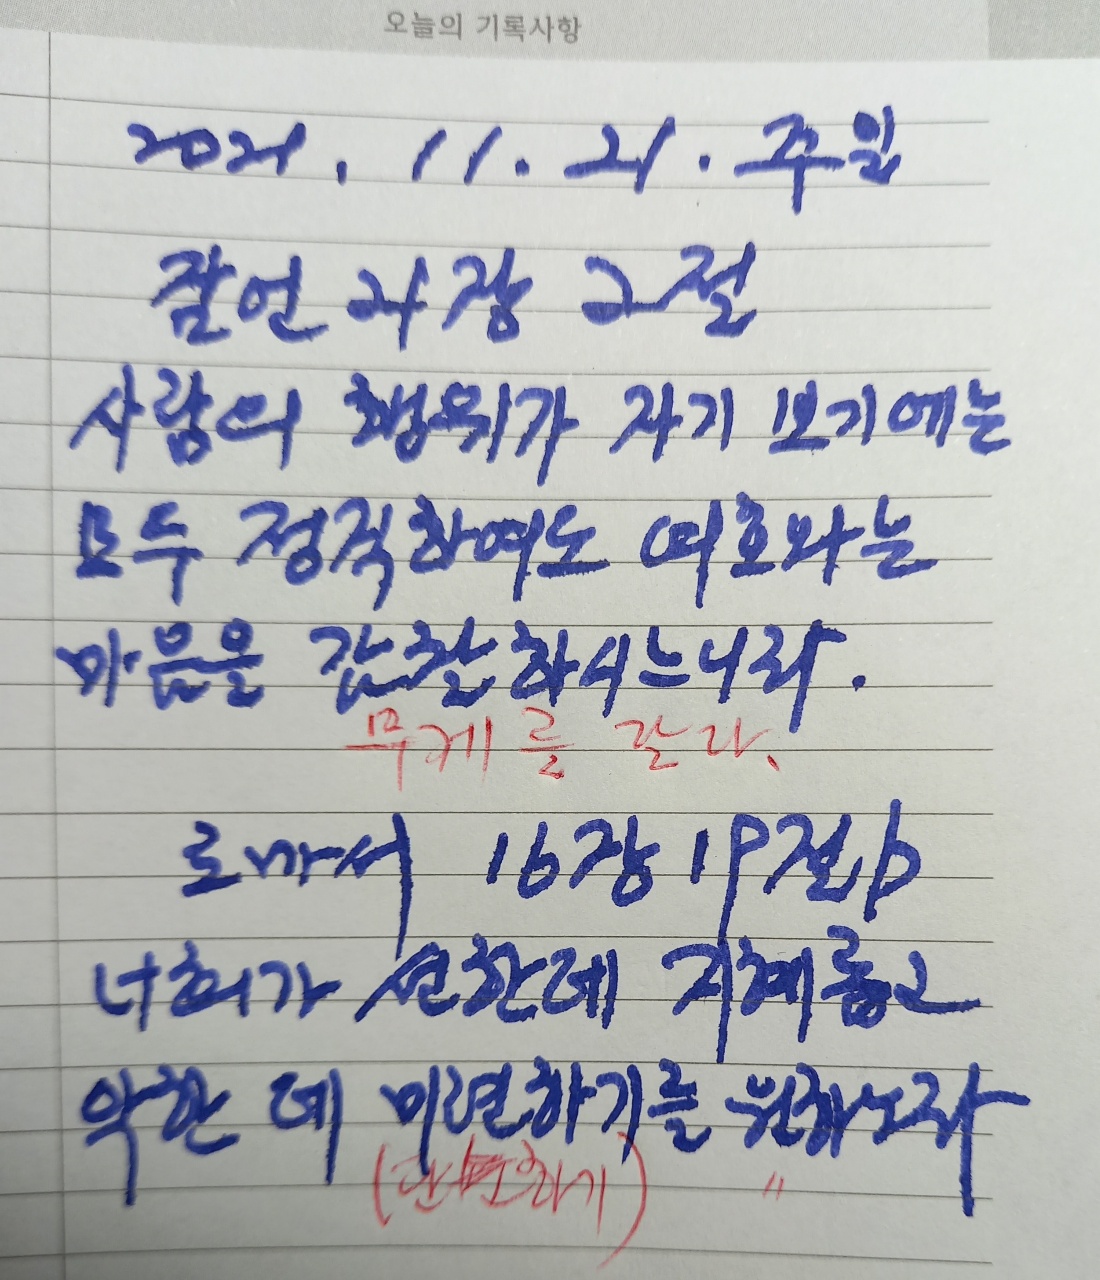 오늘의 기록사항
2021. 11. 21. 주일
잠언 21장 2절
사람의 행위가 자기 보기에는
모두 정직하여도 여호와는
마음을 감찰하시느니라.
무게를 달라.
로마서 16장 19절b
너희가 선한데 지혜롭고
악한 데 미련하기를 원하노라
"